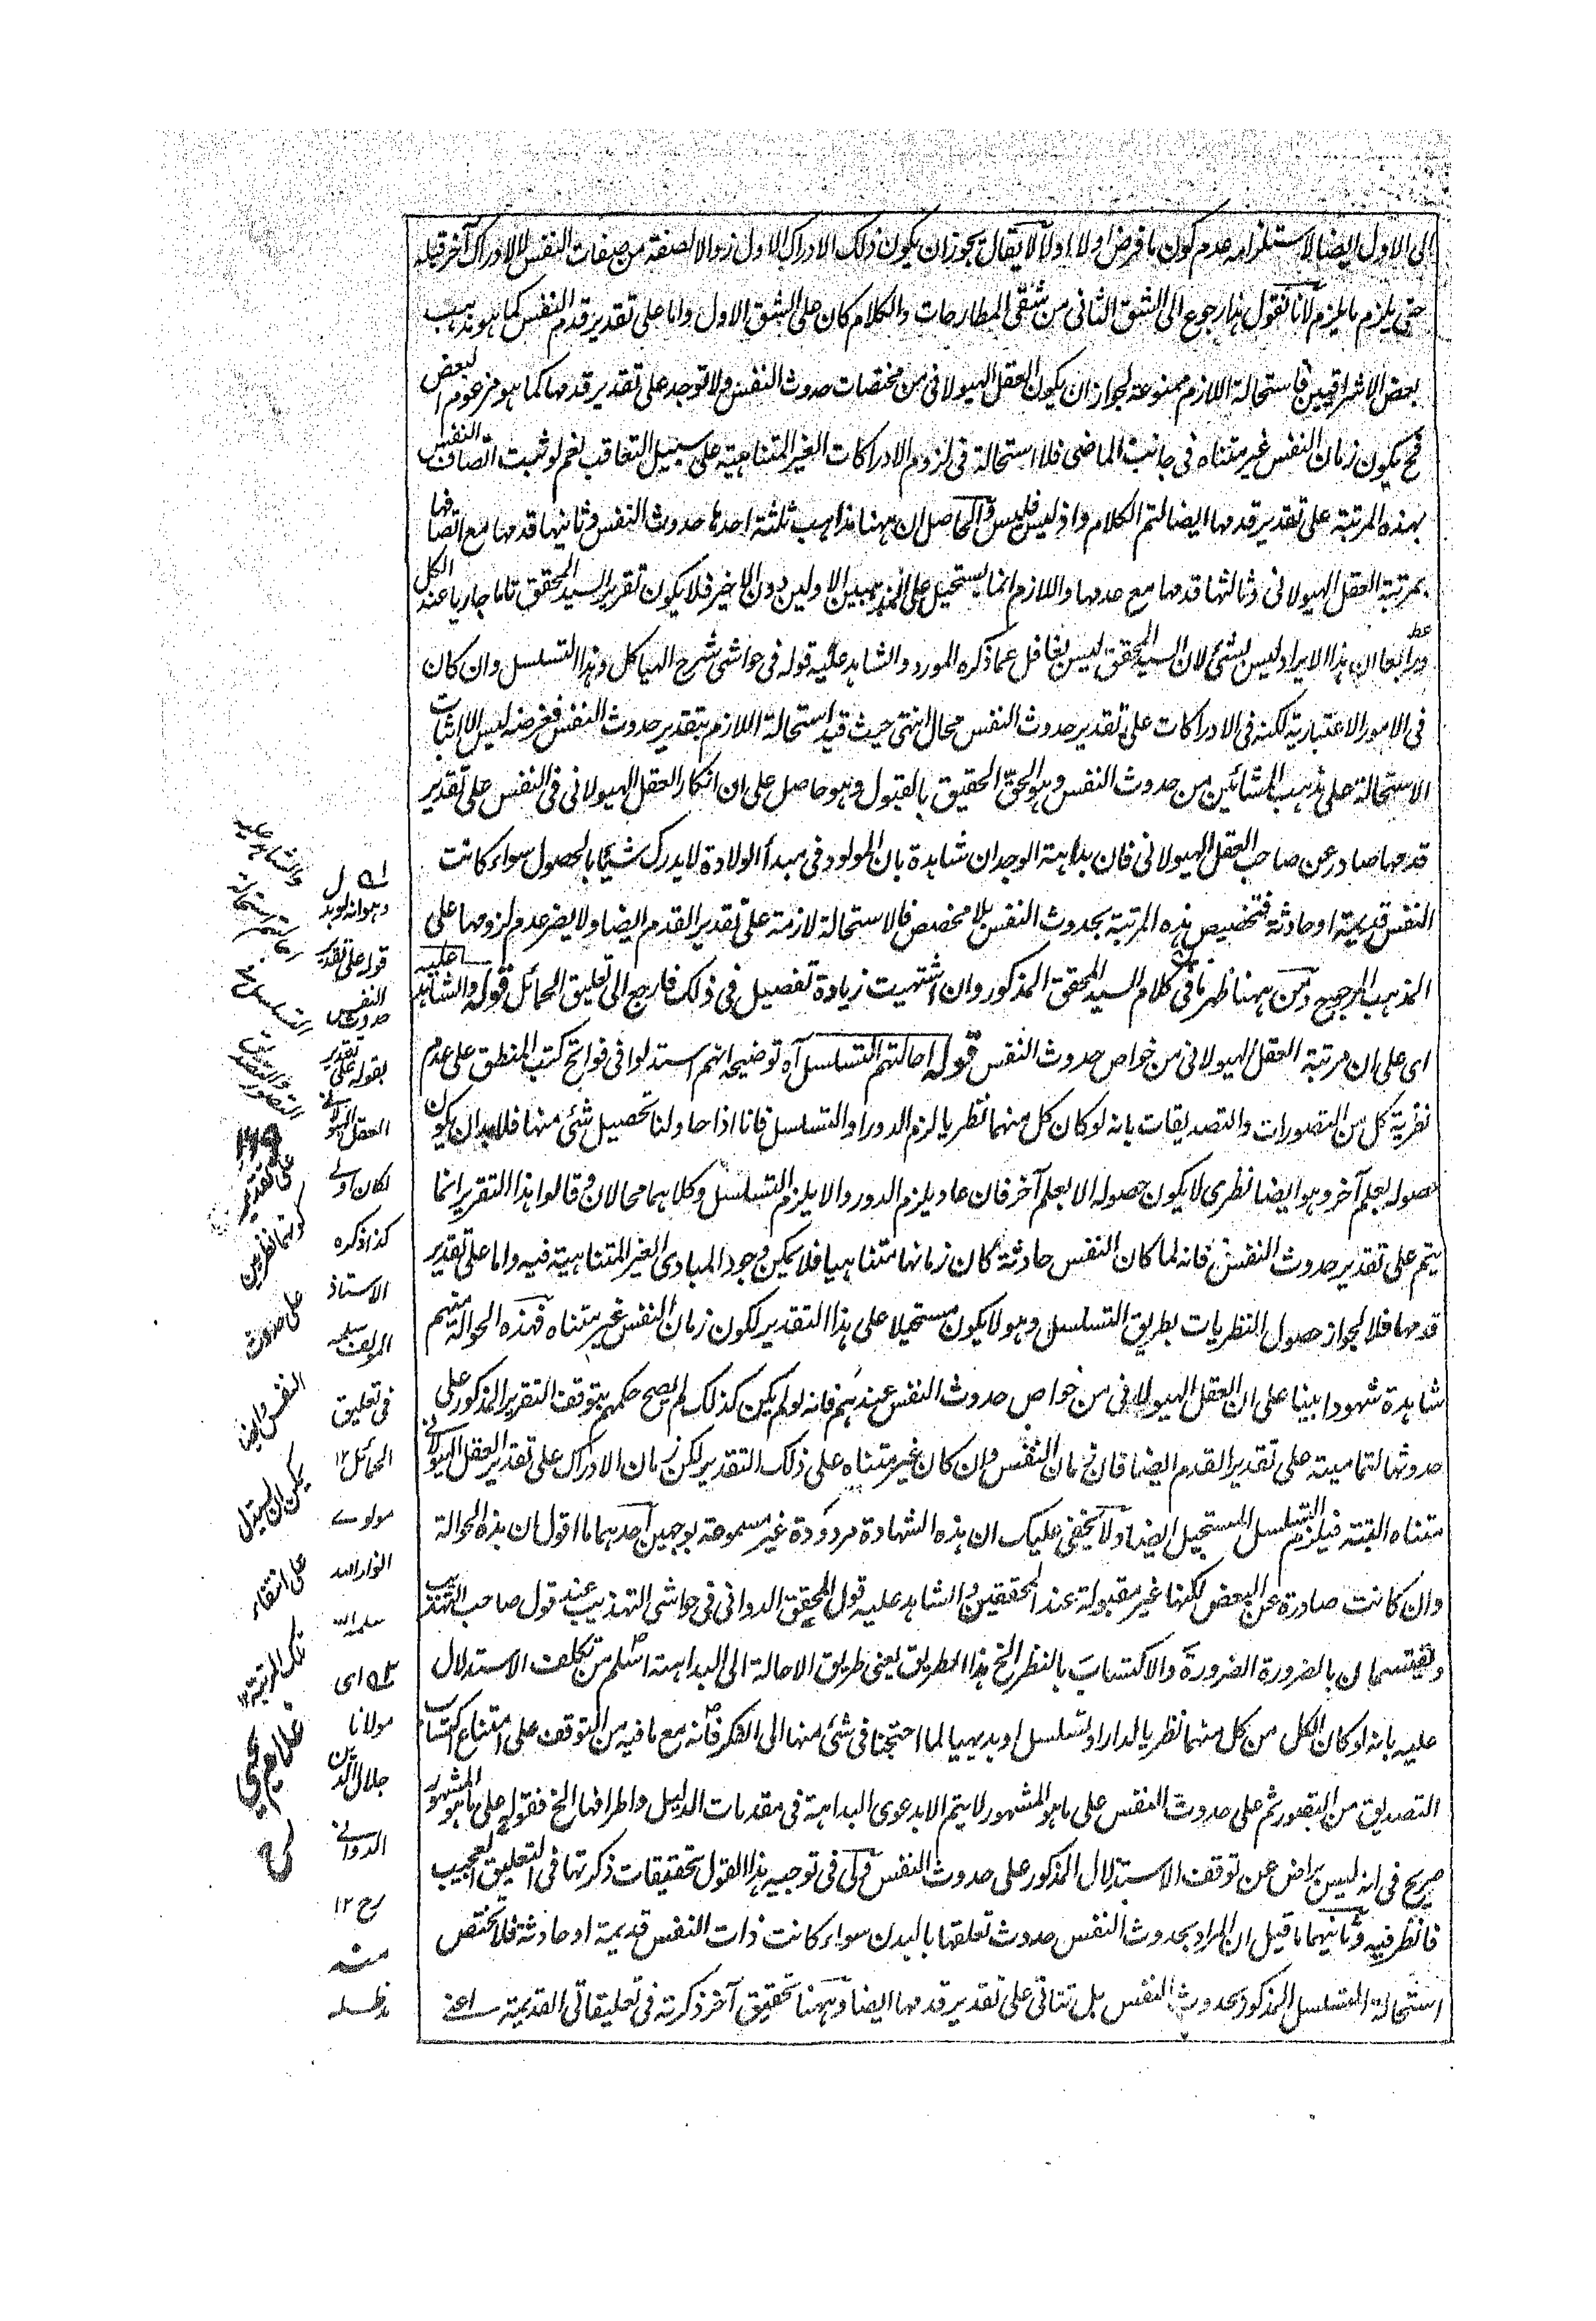 الى الاول ايضا لاستلزامه عدم كون ما فرض اولا اولا لا يقال يجوز ان يكون ذلك الادراك الاول زوالا لصفة من صفات النفس لا لادراك آخر قبله
حتى يلزم ما يلزم لانا نقول هذا رجوع الى الشق الثانى من شقى المطارحات والكلام كان على الشق الاول واما على تقدير قدم النفس كما هو مذهب
بعض الاشراقيين فاستحالة اللازم ممنوعة لجواز ان يكون العقل الهيولانى من مختصات حدوث النفس ولا توجد على تقدير قدمها كما هو مزعوم البعض
فح يكون زمان النفس غير متناه فى جانب الماضى فلا استحالة فى لزوم الادراكات الغير المتناهية على سبيل التعاقب نعم لو ثبت اتصاف النفس
بهذه المرتبة على تقدير قدمها ايضا لتم الكلام واذ ليس فليس والحاصل ان ههنا مذاهب ثلثة احدها حدوث النفس وثانيها قدمها مع اتصافها
بمرتبة العقل الهيولانى وثالثها قدمها مع عدمها واللازم انما يستحيل على المذهبين الاولين دون الاخير فلا يكون تقرير السيد المحقق تاما جاريا عند الكل
ورابعها ان هذا الايراد ليس بشئ لان السيد المحقق ليس بغافل عما ذكره المورد والشاهد عليه قوله فى حواشى شرح الهياكل وهذا التسلسل وان كان
فى الامور الاعتبارية لكنه فى الادراكات على تقدير حدوث النفس محال انتهى حيث قيد استحالة اللازم بتقدير حدوث النفس فغرضه ليس الا اثبات
الاستحالة على مذهب المشائين من حدوث النفس وهو الحق الحقيق بالقبول وهو حاصل على ان انكار العقل الهيولانى فى النفس على تقدير
قدمها صادر عن صاحب العقل الهيولانى فان بداهة الوجدان شاهدة بان المولود فى مبدأ الولادة لا يدرك شيئا بالحصول سواء كانت
النفس قديمة او حادثة فتخصيص هذه المرتبة بحدوث النفس بلا مخصص فالاستحالة لازمة على تقدير القدم ايضا ولا يضر عدم لزومها على
المذهب المرجوح ومن ههنا ظهر ما فى كلام السيد المحقق المذكور وان اشتهيت زيادة تفصيل فى ذلك فارجع الى تعليق الحمائل قوله والشاهد عليه
اى على ان مرتبة العقل الهيولانى من خواص حدوث النفس قوله احالتهم التسلسل آه توضيحه انهم استدلوا فى فواتح كتب المنطق على عدم
نظرية كل من التصورات والتصديقات بانه لو كان كل منهما نظريا لزم الدور او التسلسل فانا اذا حاولنا تحصيل شئ منها فلا بد ان يكون
حصوله بعلم آخر وهو ايضا نظرى لا يكون حصوله الا بعلم آخر فان عاد يلزم الدور والا يلزم التسلسل وكلاهما محالان وقالوا هذا التقرير انما
يتم على تقدير حدوث النفس فانه لما كان النفس حادثة كان زمانها متناهيا فلا يمكن وجود المبادى الغير المتناهية فيه واما على تقدير
قدمها فلا لجواز حصول النظريات بطريق التسلسل وهو لا يكون مستحيلا على هذا التقدير لكون زمان النفس غير متناه فهذه الحوالة منهم
شاهدة شهودا بينا على ان العقل الهيولانى من خواص حدوث النفس عندهم فانه لو لم يكن كذلك لم يصح حكمهم بتوقف التقرير المذكور على
حدوثها لتماميته على تقدير القدم ايضا فان زمان النفس وان كان غير متناه على ذلك التقدير لكن زمان الادراك على تقدير العقل الهيولانى
متناه البتة فيلزم التسلسل المستحيل ايضا ولا يخفى عليك ان هذه الشهادة مردودة غير مسموعة بوجهين احدهما ما اقول ان هذه الحوالة
وان كانت صادرة عن البعض لكنها غير مقبولة عند المحققين والشاهد عليه قول المحقق الدوانى فى حواشى التهذيب عند قول صاحب التهذيب
ويقتسمان بالضرورة الضرورة والاكتساب بالنظر الخ هذا الطريق يعنى طريق الاحالة الى البداهة اسلم من تكلف الاستدلال
عليه بانه لو كان الكل من كل منهما نظريا لدار او تسلسل او بديهيا لما احتجنا فى شئ منها الى الفكر فانه مع ما فيه من التوقف على امتناع اكتساب
التصديق من التصور ثم على حدوث النفس على ما هو المشهور لا يتم الا بدعوى البداهة فى مقدمات الدليل واطرافها الخ فقوله على ما هو المشهور
صريح فى انه ليس براض عن توقف الاستدلال المذكور على حدوث النفس ولى فى توجيه هذا القول تحقيقات ذكرتها فى التعليق العجيب
فانظر فيه وثانيهما ما قيل ان المراد بحدوث النفس حدوث تعلقها بالبدن سواء كانت ذات النفس قديمة او حادثة فلا تختص
استحالة التسلسل المذكور بحدوث النفس بل تتاتى على تقدير قدمها ايضا وههنا تحقيق آخر ذكرته فى تعليقاتى القديمة اعنى
وهو انه لو بدل
قوله على تقدير
حدوث النفس
بقوله على تقدير
العقل الهيولانى
لكان اولى
كذا ذكره
الاستاذ
المؤلف سلمه
فى تعليق
الحمائل ١٢
مولوى
انوار الله
سلمه الله
اى
مولانا
جلال الدين
الدوانى
رح ١٢
منه
مد ظله
والشاهد عليه
احالتهم استحالة
التسلسل فى
التصور والتصديق
على تقدير
كونهما نظريين
على حدوث
النفس وايضا
يمكن ان يستدل
على انتفاء
تلك المرتبة ١٢
غلام يحيى